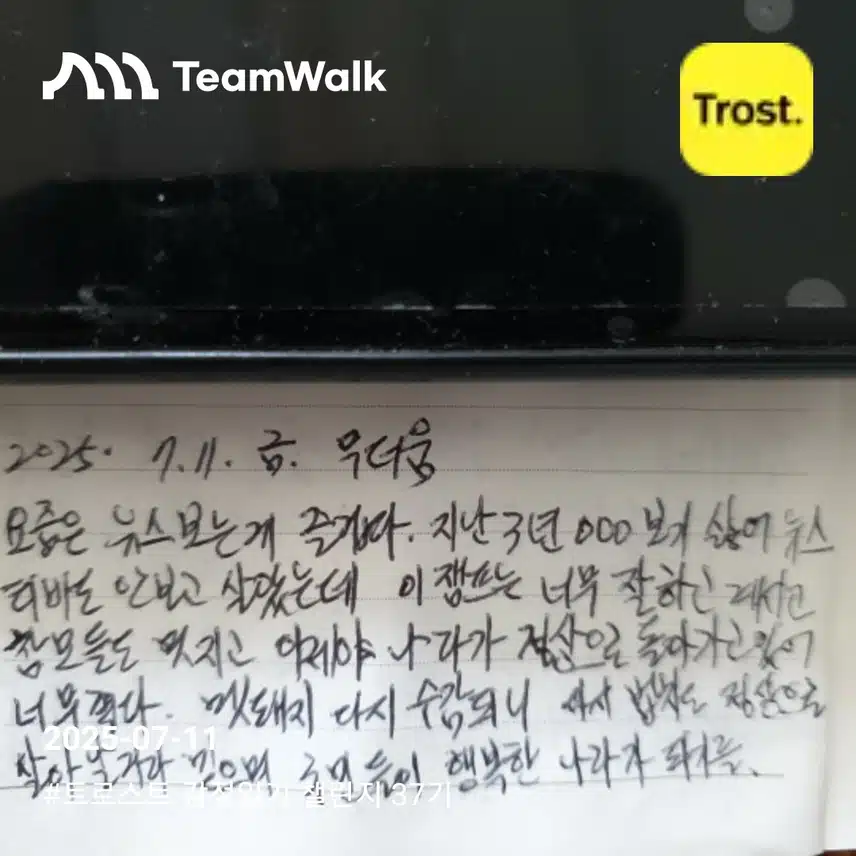 TeamWalk
Trost.
2025. 7.11. 금. 무더움
요즘은 뉴스보는게 즐겁다. 지난 3년 000 보기 싫어 뉴스
티비도 안보고 살았는데 이잼프는 너무 잘하신
참모들도 멋지고 이제야 나라가 정상으로 돌아가고있어
너무 좋다. 멧돼지 다시 수감되니 사법부도 정상으로
2025-07-11
믿으며 국민들이 행복한 나라가 되기를.
#트로스트 감정일기 챌린지 37기